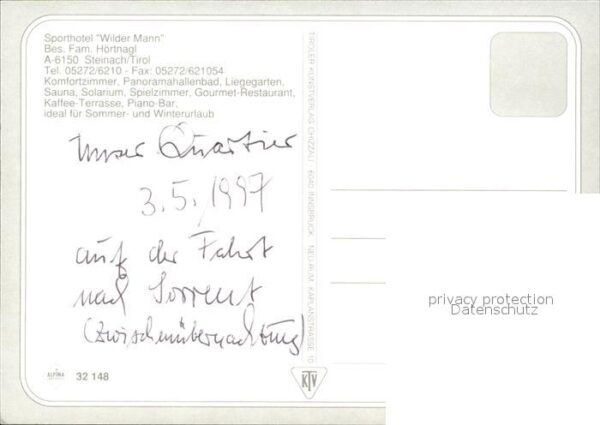 Sporthotel "Wilder Mann"
Bes. Fam. Hörtnagl
A-6150 Steinach/Tirol
Tel. 05272/6210 - Fax: 05272/621054
Komfortzimmer, Panoramahallenbad, Liegegarten,
Sauna, Solarium, Spielzimmer, Gourmet-Restaurant,
Kaffee-Terrasse, Piano-Bar.
ideal für Sommer- und Winterurlaub
Unser Quartier
3.5.1997
auf der Fahrt
nach Sorrent
(Zwischenübernachtung)
ALPINA
32 148
TIROLER KUNSTVERLAG CHIZZALI 6040 INNSBRUCK NEU-RUM KAPLANSTRASSE 10
KTV
privacy protection
Datenschutz